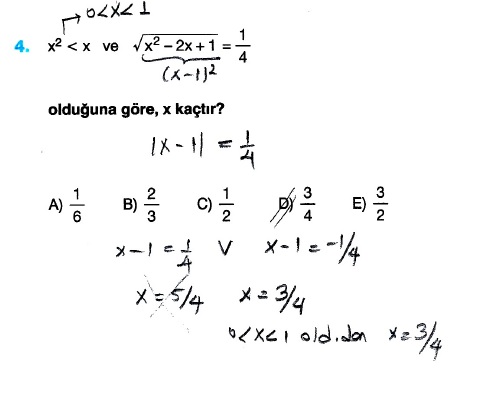 0<x<1
4. x² < x ve √x² – 2x + 1 = 1/4
(x-1)²
olduğuna göre, x kaçtır?
|x-1| = 1/4
A) 1/6 B) 2/3 C) 1/2 D) 3/4 E) 3/2
x-1 = 1/4 V x-1 = -1/4
x = 5/4 x = 3/4
0<x<1 old.dan x = 3/4